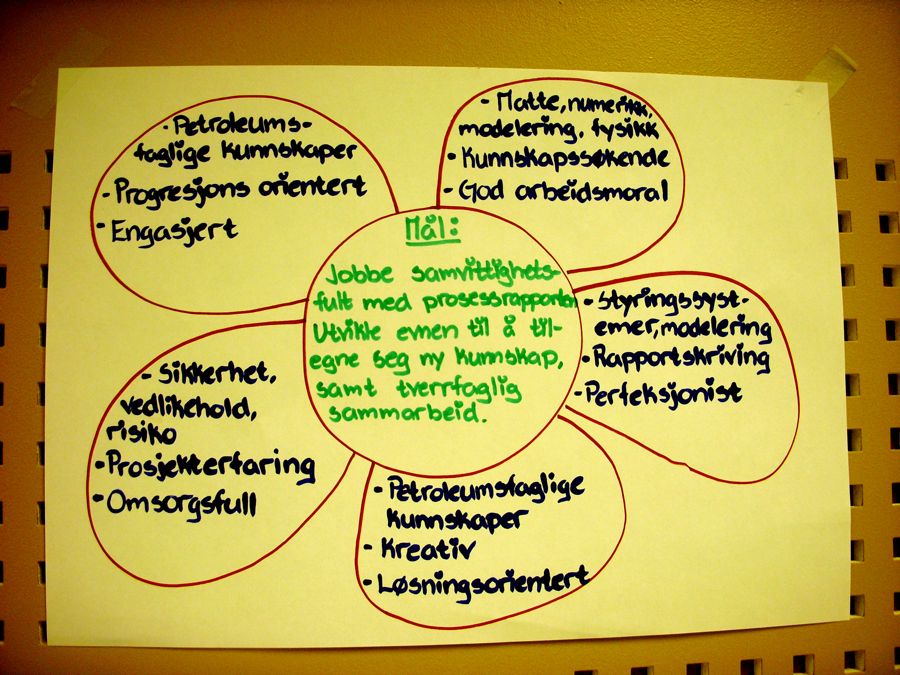 • Petroleums-
faglige kunnskaper
• Progresjons orientert
• Engasjert
• Matte, numerikk,
modelering, fysikk
• Kunnskapssøkende
• God arbeidsmoral
Mål:
Jobbe samvittighets-
fullt med prosessrapporten
Utvikle evnen til å til-
egne seg ny kunnskap,
samt tverrfaglig
sammarbeid.
• Styringssyst-
emer, modelering
• Rapportskriving
• Perfeksjonist
• Sikkerhet,
vedlikehold,
risiko
• Prosjekterfaring
• Omsorgsfull
• Petroleumsfaglige
kunnskaper
• Kreativ
• Løsningsorientert